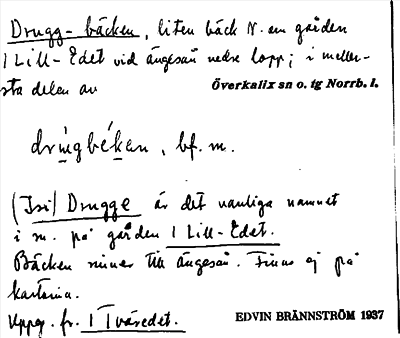 Drugg-bäcken, liten bäck N. om gården
1 Lill-Edet vid ängesån nedre lopp; i meller-
sta delen av Överkalix sn o. tg Norrb. l.
drṳngbékan, bf. m.
(Isi) Drugge är det vanliga namnet
i m. på gården 1 Lill-Edet.
Bäcken rinner till ängesån. Finns ej på
kartorna.
Uppg. fr. 1 Tväredet. EDVIN BRÄNNSTRÖM 1937